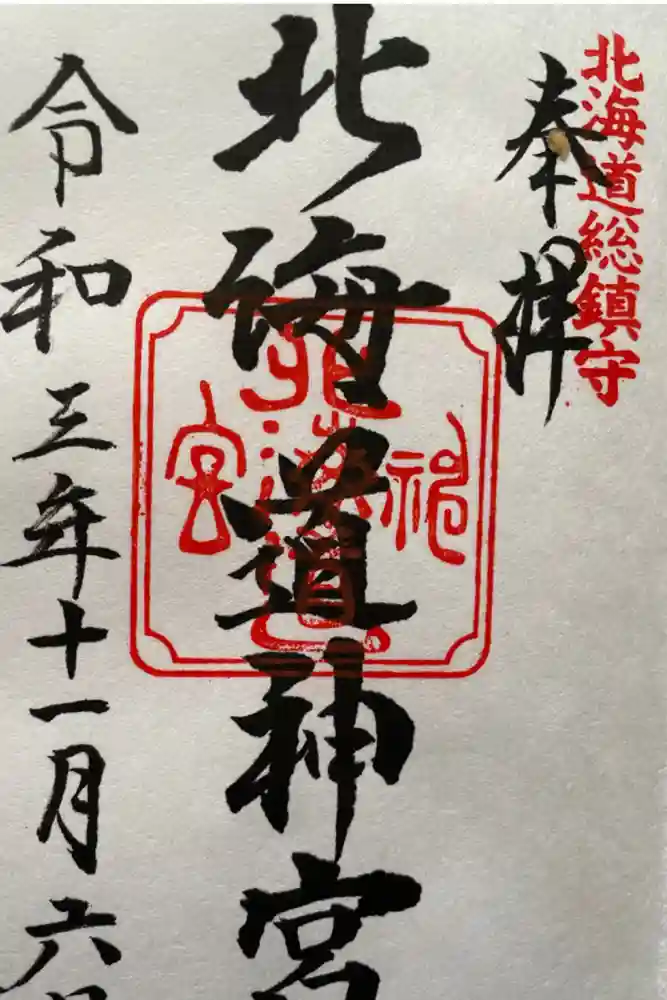 北海道総鎮守
奉拝
北海道神宮
北海道神宮
令和三年十一月六日